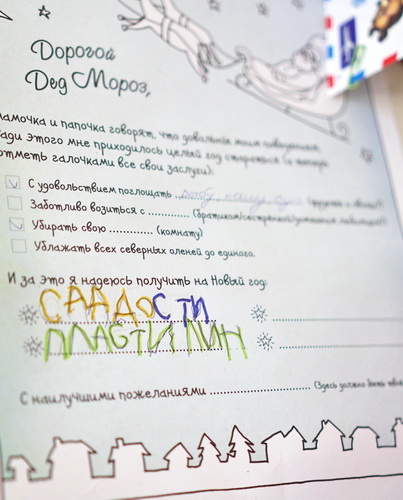 Дорогой
Дед Мороз,
мамочка и папочка говорят, что довольны моим поведением.
ради этого мне приходилось целый год стараться (и теперь
отметь галочками все свои заслуги):
С удовольствием поглощать ... (фрукты и овощи)
Заботливо возиться с ............ (братиком/сестренкой/домашним любимцем)
Убирать свою ............ (комнату)
Ублажать всех северных оленей до единого.
И за это я надеюсь получить на Новый год:
СЛАДОСТИ
ПЛАСТИЛИН
С наилучшими пожеланиями ........................ (Здесь должно быть